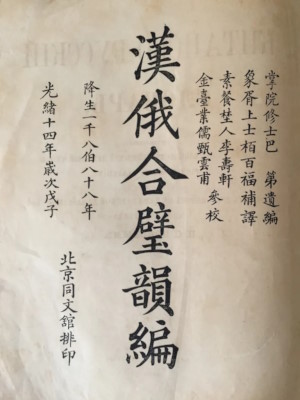 掌院修士巴 第遺編
象胥上士柏百福補譯
素餐埜人李壽軒
金臺業儒甄雲甫 參校
漢俄合璧韻編
降生一千八伯八十八年
光緒十四年歲次戊子
北京同文舘排印